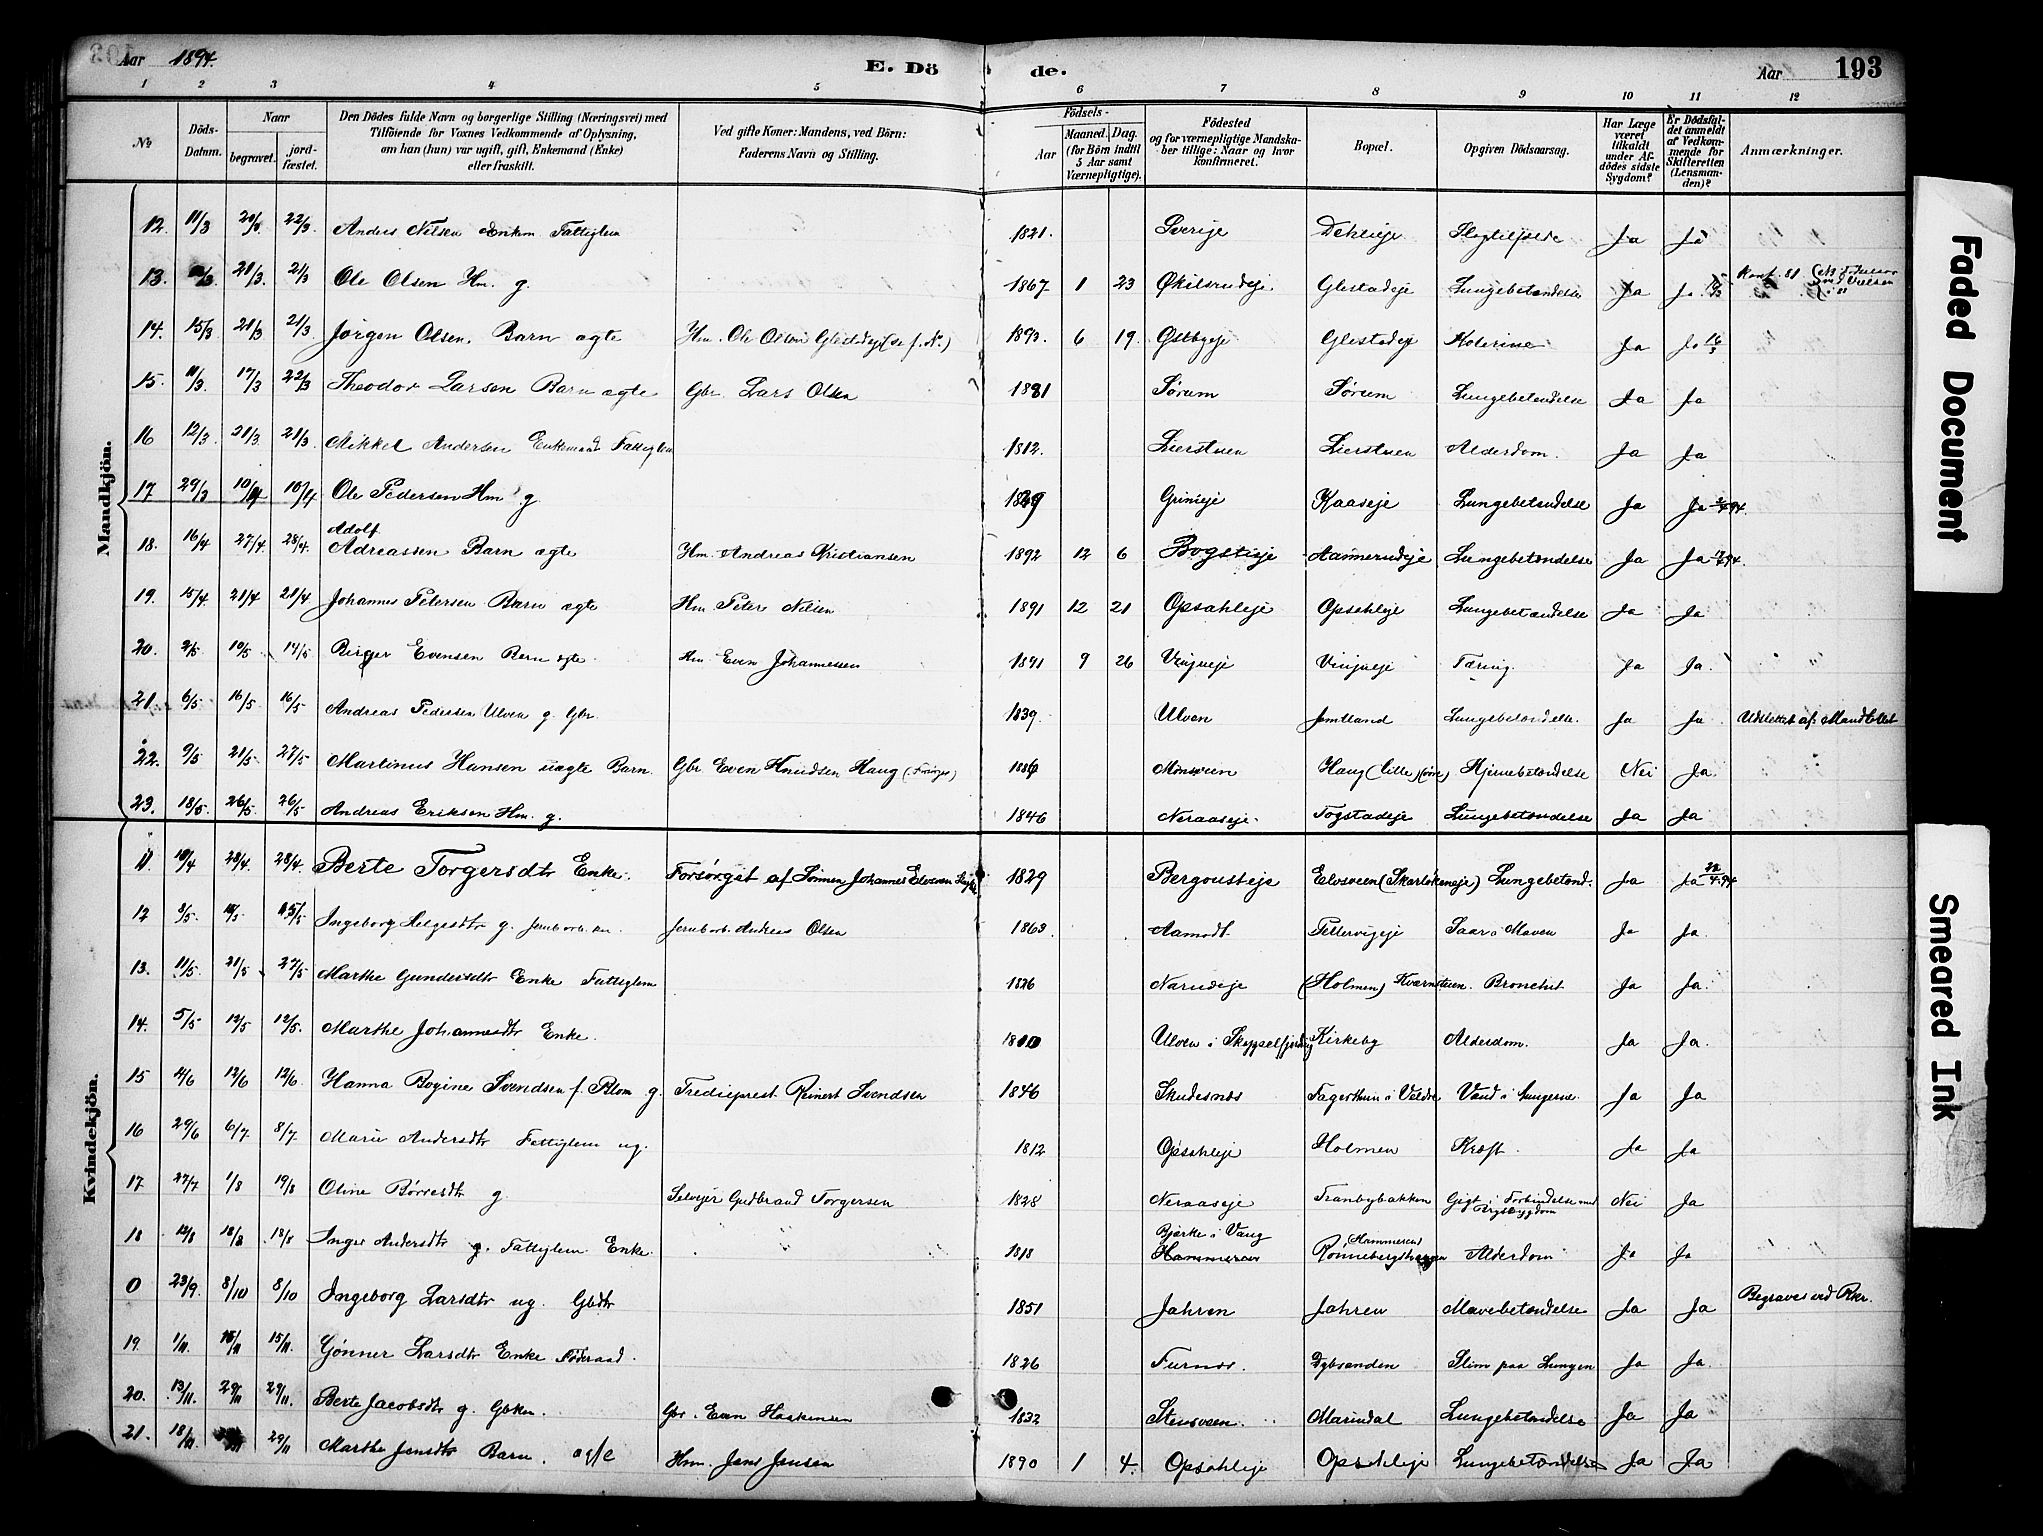 Aar 1894. E. Dö de. Aar 193
1 2 3 4 5 6 7 8 9 10 11 12
No Döds-Datum. Naar begravet. jordfæstet. Den Dödes fulde Navn og borgerlige Stilling (Næringsvei) med Tilföiende for Voxnes Vedkommende af Oplysning, om han (hun) var ugift, gift, Enkemand (Enke) eller fraskilt. Ved gifte Koner: Mandens, ved Börn: Faderens Navn og Stilling. Födsels- Aar Maaned. Dag. (for Börn indtil 5 Aar samt Værnepligtige). Födested og for værnepligtige Mandskaber tillige: Naar og hvor konfirmeret. Bopæl. Opgiven Dödsaarsag. Har Læge været tilkaldt under Afdödes sidste Sygdom? Er Dödsfaldet anmeldt af Vedkommende for Skifteretten (Lensmanden)? Anmærkninger.
Mandkjön.
12. 11/3 22/3 Anders Nilsen Enkem. Fattiglem 1821. Sverige Ja Ja
13. 21/3. 21/3 Ole Olsen Hm. g. 1867 1 23 Økilsrudeje Glestadeje Lungebetændelse Ja Ja Konf. 81
14. 15/3 21/3 21/3 Jørgen Olsen. Barn ægte Hm. Ole Olsen Glestadeje 1893. 6 19. Østbyeje Glestadeje Ja Ja 16/3
15. 11/3. 17/3 22/3 Theodor Larsen Barn ægte Gbr. Lars Olsen 1881 Sørum Sørum Lungebetændelse Ja Ja
16 12/3. 21/3. 21/3. Mikkel Andersen Enkemand Fattiglem 1812. Lierstuen Lierstuen Alderdom. Ja Ja
17. 29/3 10/4 10/4 Ole Pedersen Hm g 1829 Grimeje Kaaseje Lungebetændelse Ja Ja
18. 16/4 27/4. 28/4. Adolf Adreassen Barn ægte Hm. Andreas Kristiansen 1892 12 6 Bogstieje Aannerudeje Lungebetændelse Ja Ja
19. 15/4. 21/4 21/4 Johannes Petersen Barn ægte Hm Peter Nilsen 1891 12 21 Opsahleje Opsahleje Lungebetændelse Ja Ja
20. 2/5 10/5. 14/5 Birger Evensen Barn ægte. Hm Even Johannessen 1891 9 26 Vinjueje Vinjueje Tæring. Ja Ja.
21. 6/5. 16/5 16/5. Andreas Pedersen Ulven g. Gbr. 1839. Ulven Jemtland Lungebetændelse. Ja Ja
22. 9/5 21/5. 27/5. Martinus Hansen uægte Barn. Gbr Even Knudsen Haug Minsveen Haug (Lille) Hjernebetændelse Nei Ja.
23. 18/5. 26/5. 26/5. Andreas Eriksen Hm. g. 1846 Neraaseje. Togstadeje Lungebetændelse Ja Ja
Kvindekjön.
11. 10/4 28/4. 28/4. Berte Torgersdtr Enke. Forsörget af Sönnen Johannes Elvsveen 1829 Bergousteje Elvsveen (Skarlökeneje) Lungebetænd. Ja Ja 22/4.94
12 3/5. 15/5 Ingeborg Helgesdtr g. Jernbarb. Andreas Olsen 1863 Aamodt Tettervigeje Saar i Maven Ja Ja.
13. 11/5. 21/5 27/5 Marthe Gundersdtr Enke Fattiglem 1826 Narudeje (Holmen) Kværnstuen. Bronchit Ja Ja.
14. 5/5 12/5 12/5. Marthe Johannesdtr Enke. 1810 Ulven i Kirkeby Alderdom. Ja Ja.
15 4/6 12/6 12/6. Hanna Bogine Svendsen f. Blom g. Trediepræst Reinert Svendsen 1846 Skudesnæs Fagerthun i Veldre Vand i Lungerne. Ja Ja
16 29/6 6/7. 8/7. Marie Andersdtr Fattiglem ug. 1812 Opsahleje Holmen Kræft. Ja Ja
17 27/7 1/8 19/8 Oline Börresdtr g. Selvejer Gudbrand Torgersen 1828 Neraaseje Tranbybakken Gigt i Forbindelse med Nei Ja
18 12/8 18/8 18/8 Inger Andersdtr g. Fattiglem Enke. 1818 Bjerke i Vang Hammeren Hammeren Alderdom Ja Ja
0 23/9. 8/10 8/10 Ingeborg Larsdtr ug. Gbdtr 1851 Jahren Jahren Mavebetændelse Ja Ja Begraves ved Rkr.
19. 1/11. 15/11 15/11. Gönner Larsdtr Enke Föderaad. 1826 Furnæs. Dybsanden Slim paa Lungen Ja Ja.
20. 13/11. 29/11 29/11. Berte Jacobsdtr g. Gbken. Gbr. Even Haakensen 1832 Stensveen. Marindal Lungebetændelse Ja Ja
21. 18/11. 29/11 Marthe Jensdtr Barn. ægte Hm. Jens Jensen 1890 1 4. Opsahleje Opsahleje Lungebetændelse Ja Ja
Faded Document
Smeared Ink